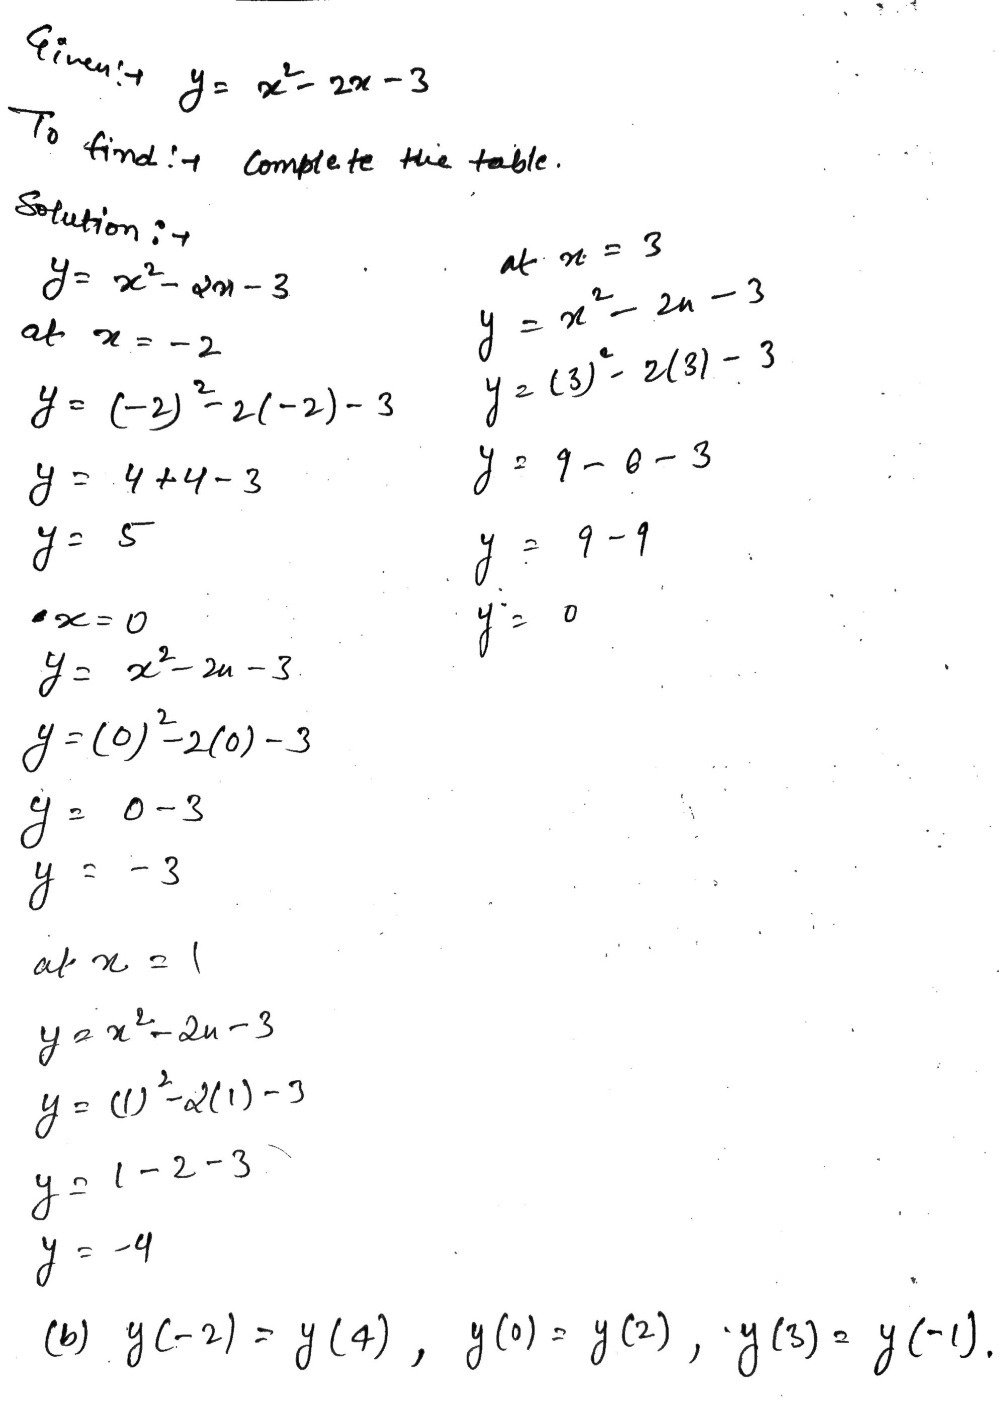 Given:→ y = x² - 2x - 3
To find:→ Complete the table.
Solution:→
y = x² - 2x - 3
at x = -2
y = (-2)² - 2(-2) - 3
y = 4 + 4 - 3
y = 5
• x = 0
y = x² - 2x - 3
y = (0)² - 2(0) - 3
y = 0 - 3
y = -3
at x = 1
y = x² - 2x - 3
y = (1)² - 2(1) - 3
y = 1 - 2 - 3
y = -4
at x = 3
y = x² - 2x - 3
y = (3)² - 2(3) - 3
y = 9 - 6 - 3
y = 9 - 9
y = 0
(b) y(-2) = y(4), y(0) = y(2), y(3) = y(-1).